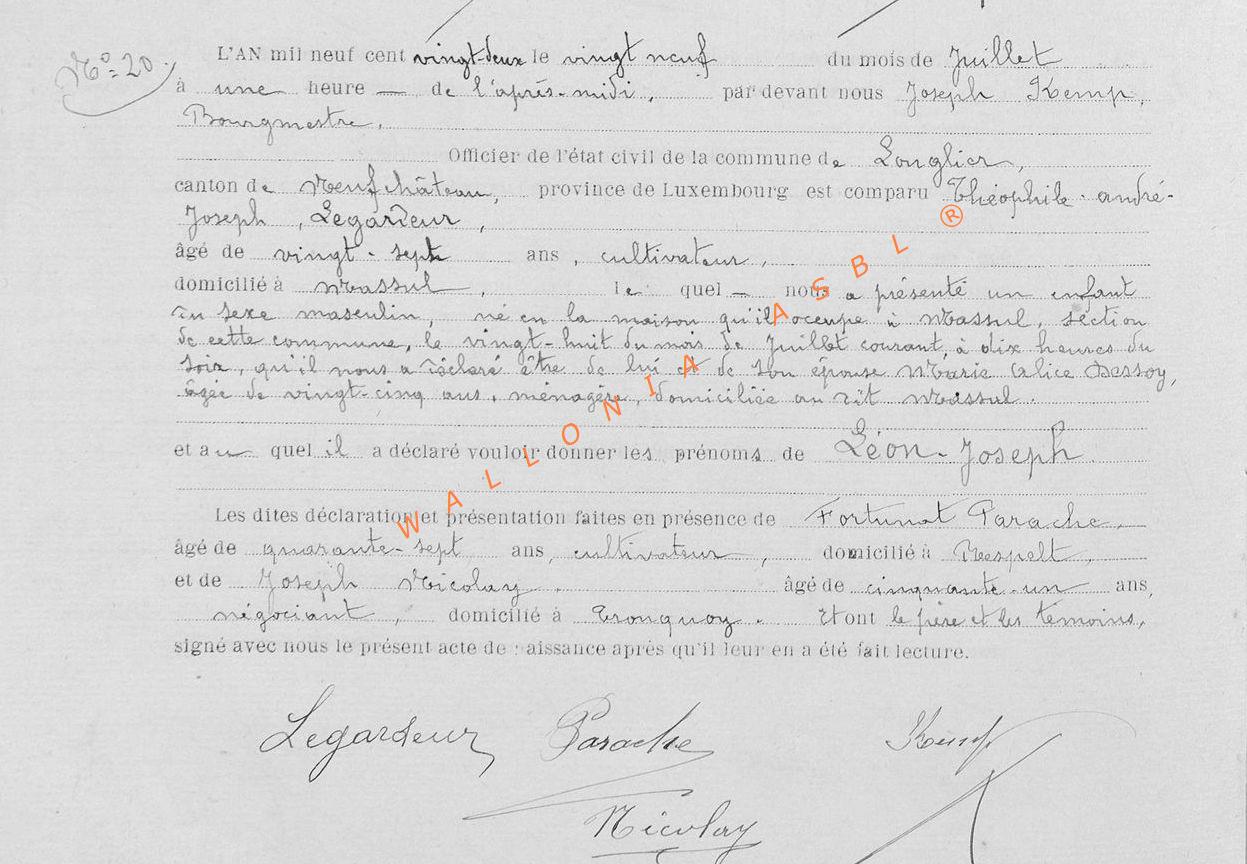 N° 20.
L'AN mil neuf cent vingt-deux le vingt neuf du mois de Juillet
à une heure — de l'après-midi, par devant nous Joseph Kemp,
Bourgmestre,
Officier de l'état civil de la commune de Longlier,
canton de Neufchâteau, province de Luxembourg est comparu Théophile-andré-
Joseph, Legardeur,
âgé de vingt-sept ans, cultivateur,
domicilié à Massul, le quel — nous a présenté un enfant
du sexe masculin, né en la maison qu'il occupe à Massul, section
de cette commune, le vingt-huit du mois de Juillet courant, à dix heures du
soir, qu'il nous a déclaré être de lui et de son épouse Marie Alice Dessoy,
âgée de vingt-cinq ans, ménagère, domiciliée au dit Massul.
et au quel il a déclaré vouloir donner les prénoms de Léon-Joseph.
Les dites déclaration et présentation faites en présence de Fortunat Parache,
âgé de quarante-sept ans, cultivateur, domicilié à Respelt,
et de Joseph Nicolay, âgé de cinquante-un ans,
négociant, domicilié à Tronquoy. Et ont le père et les témoins,
signé avec nous le présent acte de naissance après qu'il leur en a été fait lecture.
Legardeur Parache Kemp
Nicolay
WALLONIA ASBL ®